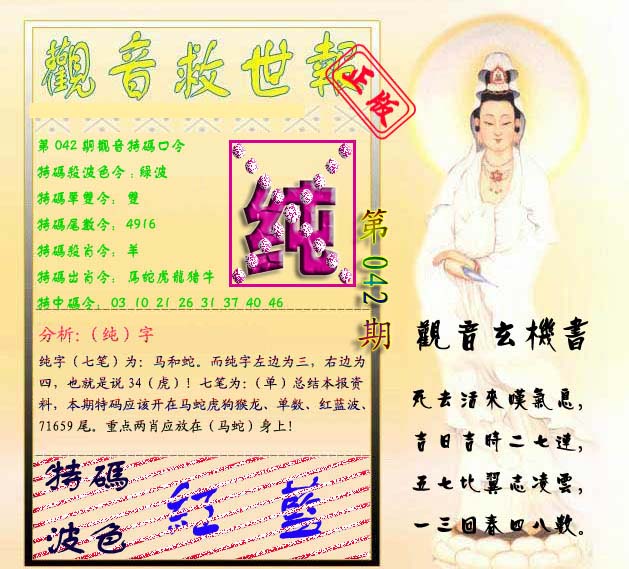 觀音救世報
正版
第042期觀音特碼口令
特碼殺波色令:綠波
特碼單雙令: 雙
特碼尾數令: 4916
特碼殺肖令: 羊
特碼出肖令: 馬蛇虎龍豬牛
特中碼令: 03 10 21 26 31 37 40 46
纯
第042期
分析:(纯)字
纯字(七笔)为:马和蛇。而纯字左边为三,右边为
四,也就是说34(虎)!七笔为:(单)总结本报资
料,本期特码应该开在马蛇虎狗猴龙、单数、红蓝波、
71659尾。重点两肖应放在(马蛇)身上!
特碼
波色
紅 藍
觀音玄機書
死去活來嘆氣息,
吉日吉時二七連,
五七比翼志凌雲,
一三回春四八數。